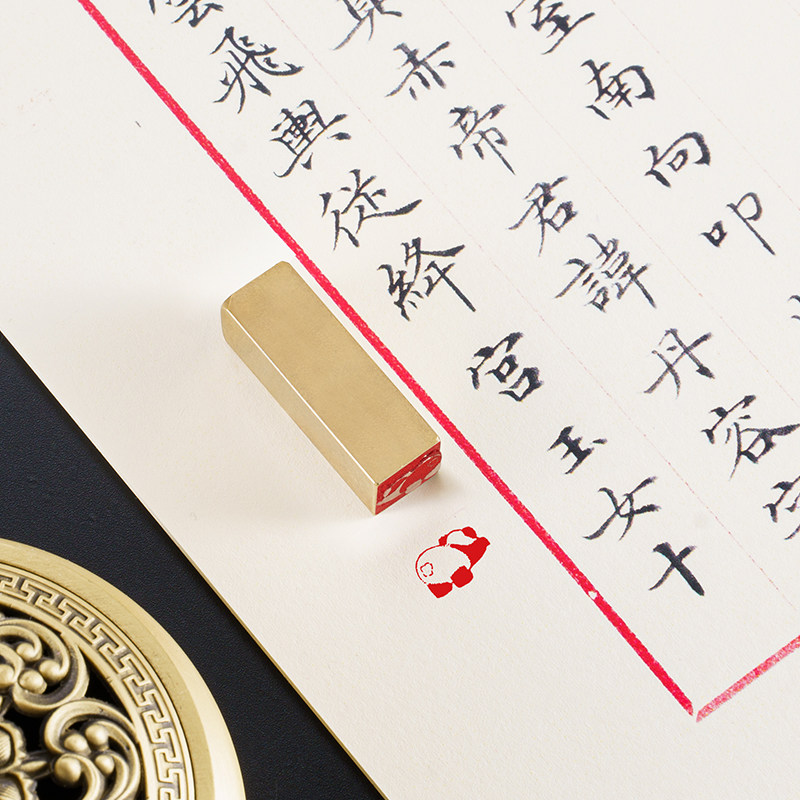 室南向叩
赤帝君諱丹容
雲飛輿從絳宮玉女十